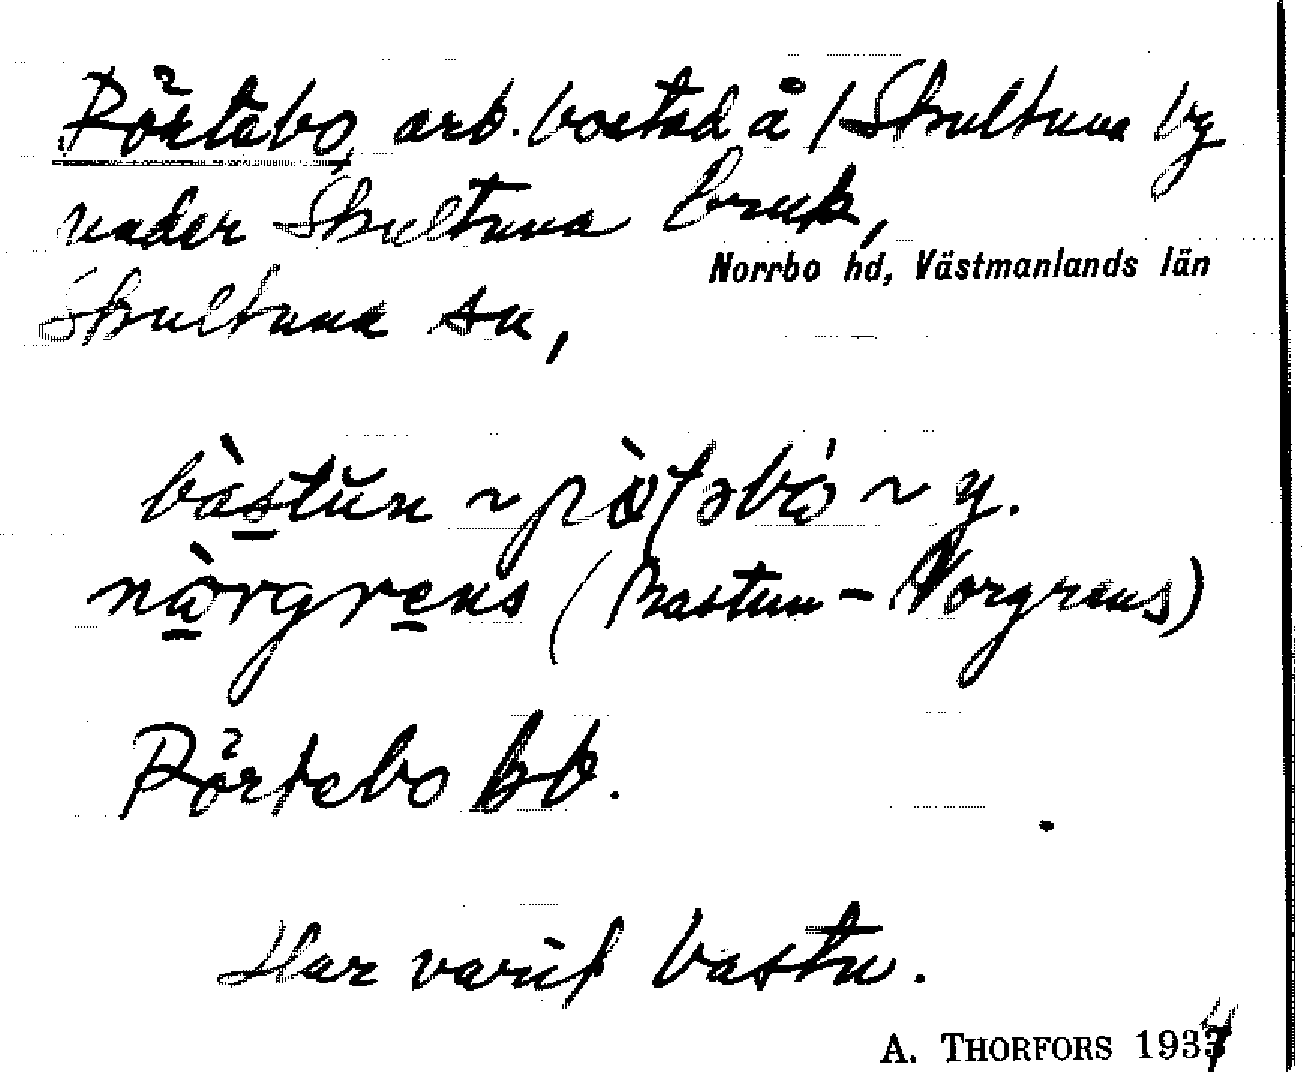 Rörtebo, arb. bostad å Skultuna by
under Skultuna bruk,
Norrbo hd, Västmanlands län
Skultuna sn,
bàstŭn ~
nàrgrens (Bastun - Norgrens)
Rörtebo kb.
Har varit bastu.
A. THORFORS 1934